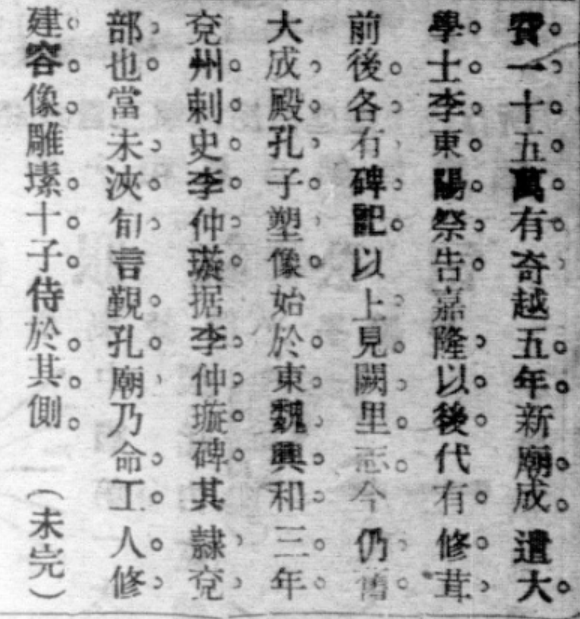 費一十五萬有奇越五年新廟成遣大
學士李東陽祭告嘉隆以後代有修葺
前後各有碑記以上見闕里志今仍舊
大成殿孔子塑像始於東魏興和三年
兗州刺史李仲璇据李仲璇碑其隸兗
部也當未浹旬言覲孔廟乃命工人修
建容像雕塐十子侍於其側（未完）